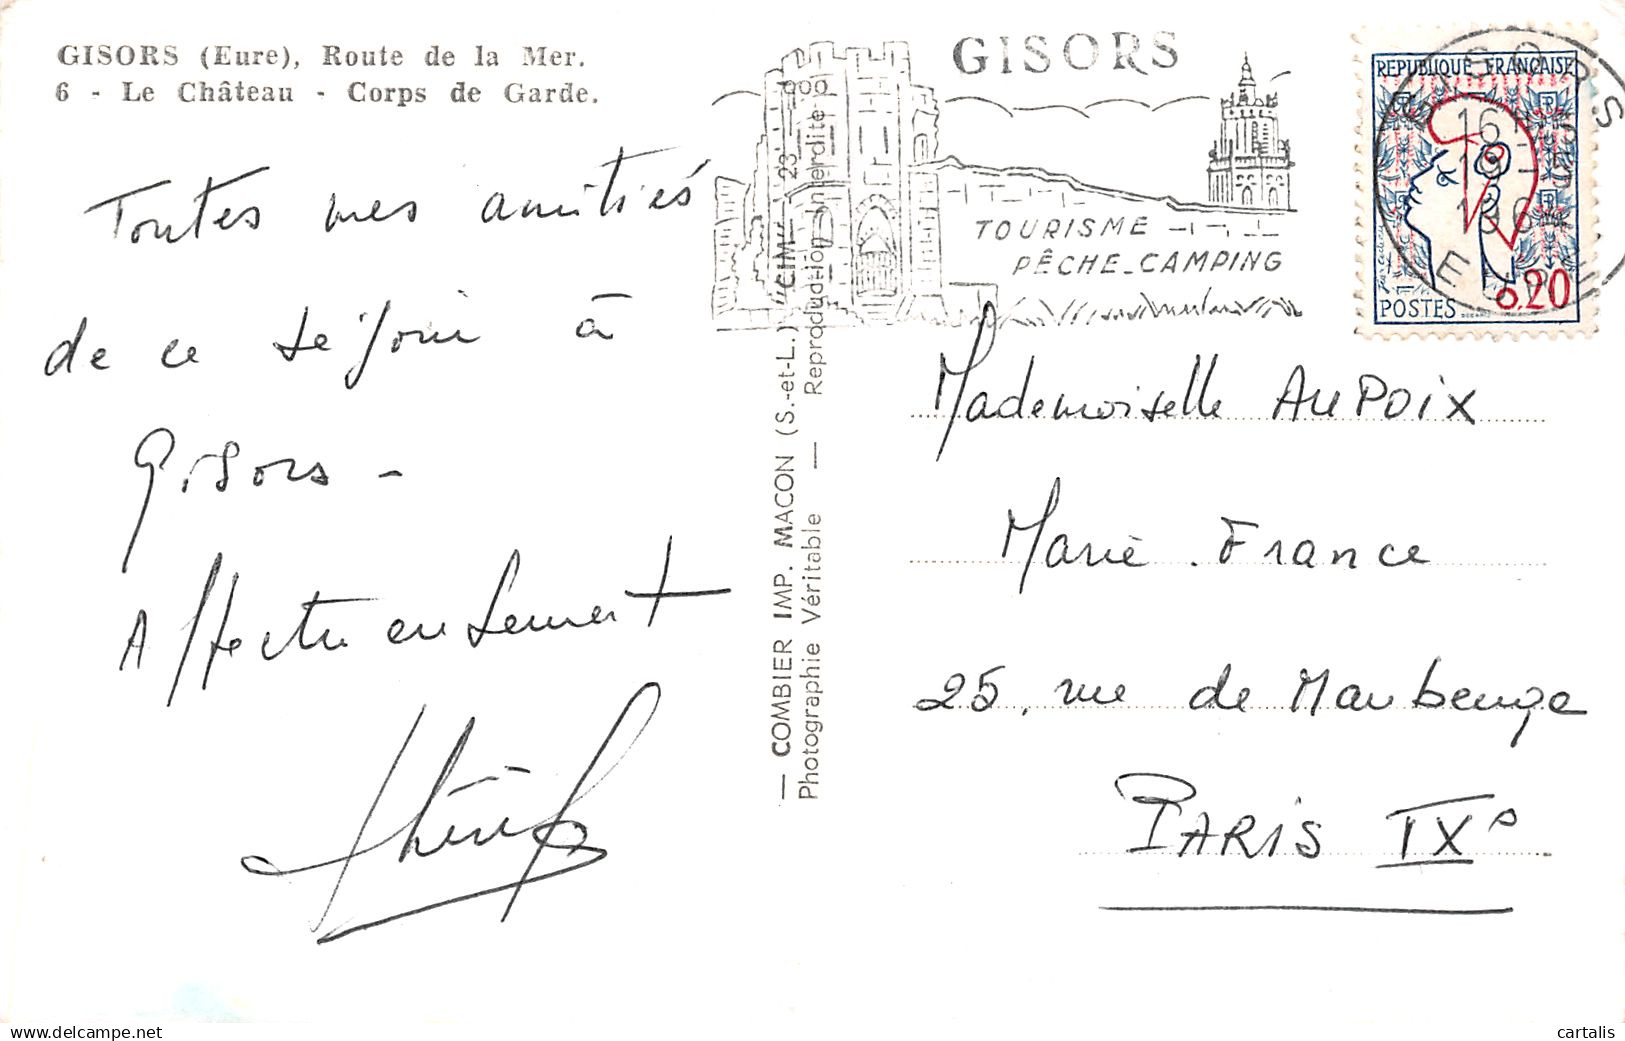 GISORS (Eure), Route de la Mer.
6 - Le Château - Corps de Garde.
Toutes mes amitiés
de ce séjour à
Gisors -
Affectueusement
GISORS
TOURISME
PÊCHE_CAMPING
REPUBLIQUE FRANÇAISE
0,20
POSTES
GISORS
EURE
— COMBIER IMP. MACON (S.-et-L.) "CIM" — 23
Photographie Véritable — Reproduction Interdite
Mademoiselle AUPOIX
Marie. France
25, rue de Maubeuge
PARIS IXe
www.delcampe.net
cartalis